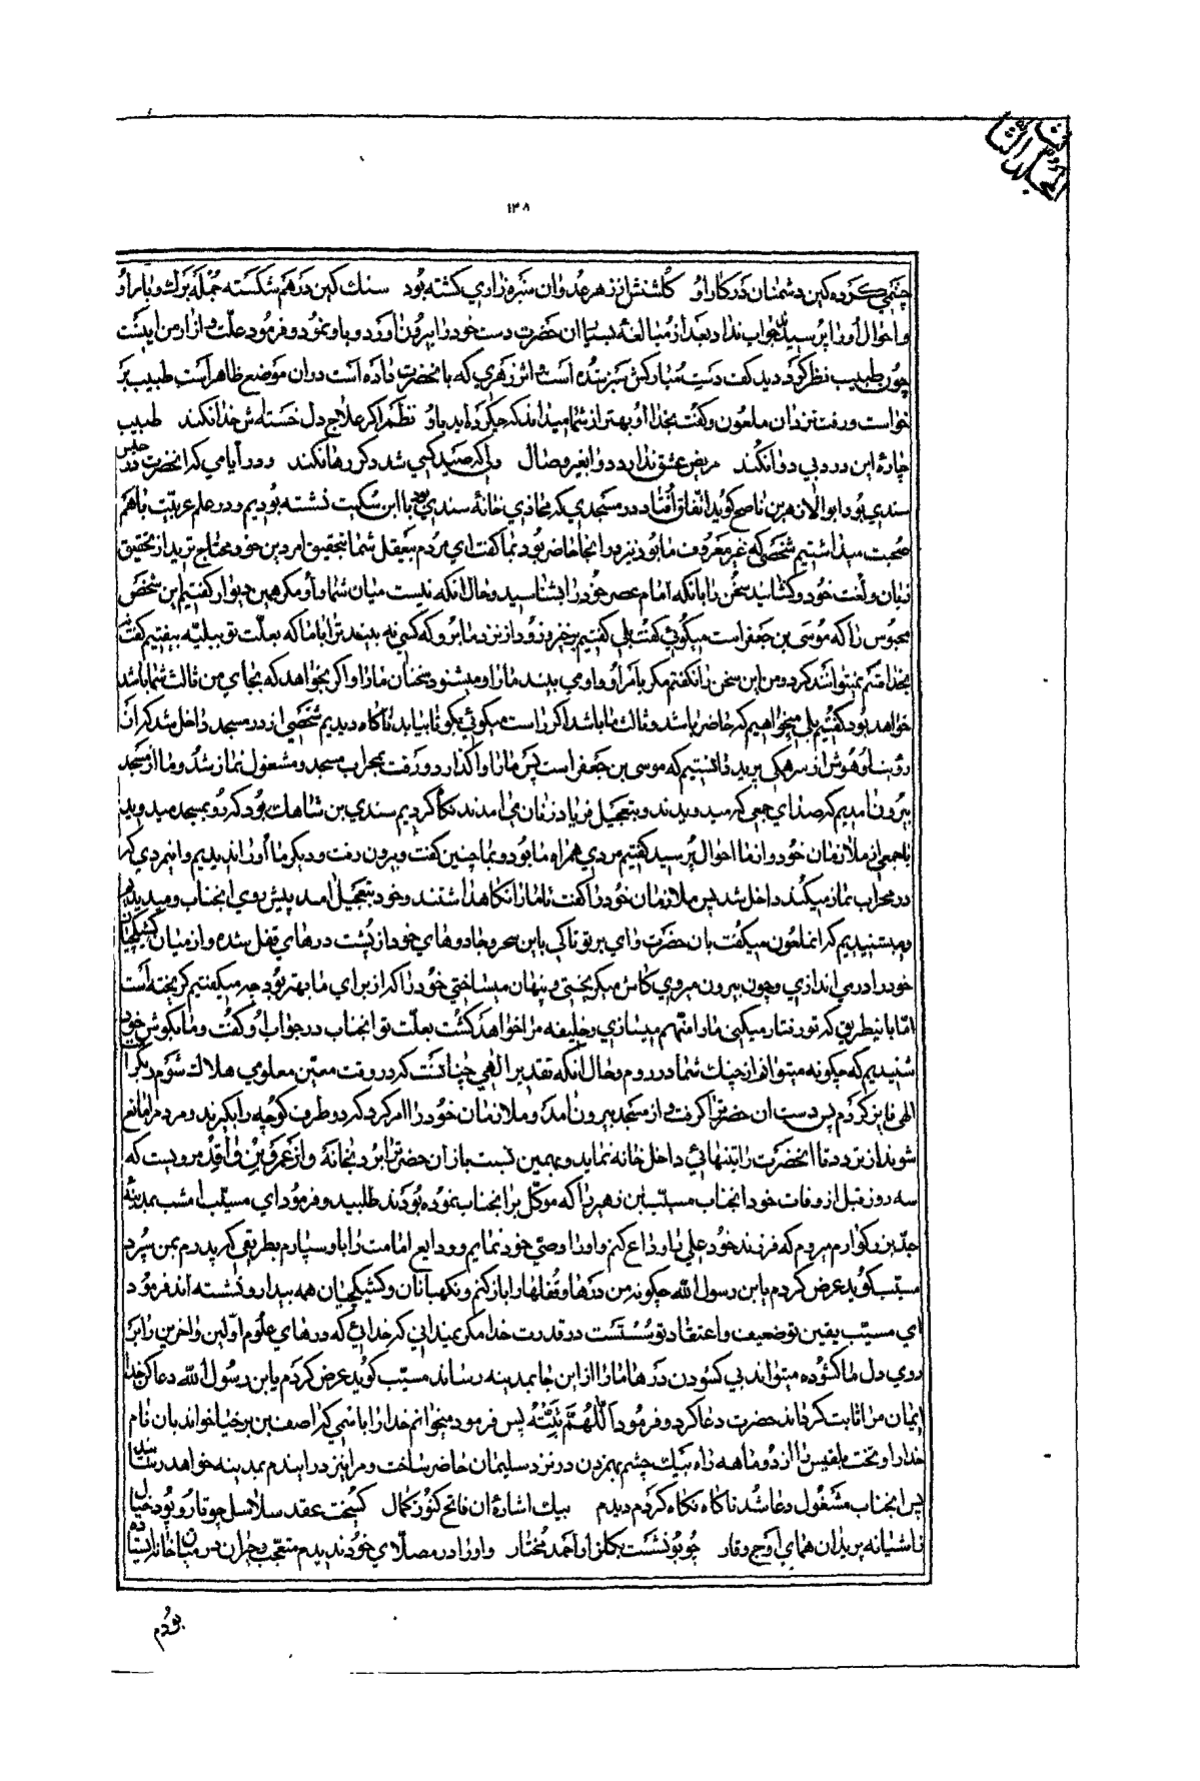 المجلد الثالث
۱۳۸
چشمی کرده کین دشمنان در کار او گلشنش از زهر عدوان سبزه زاری کشته بود سنک کین در هم شکسته جمله برک و بار او
و احوال او را پرسید جواب نداد بعد از مبالغهٔ بسیار ان حضرت دست خود را بیرون اورد و باو نمود و فرمود علّت و ازار من اینست
چون طبیب نظر کرد دید کف دست مبارکش سبز شده است و اثر زهری که بانحضرت داده است در ان موضع ظاهر است طبیب بر
خواست و رفت نزد ان ملعون و گفت بخدا او بهتر از شما میداند که چه کرده اید باو نظم اکر علاج دل خسته ش خدا نکند طبیب
چارهٔ این درد بی دوا نکند مریض عشق ندارد دوا بغیر وصال ولی که صید کسی شد دکر رها نکند و در ایامی که انحضرت در حبس
سندی بود ابو الازهر بن ناصح کوید اتفاق افتاد در مسجدی که محاذی خانهٔ سندی بود با ابن سکیت نشسته بودیم و در علم عربیّت با هم
صحبت میداشتیم شخصی که غیر معروف ما بود نیز در انجا حاضر بود بما گفت ای مردم بعقل شما بتحقیق امر دین خود محتاج ترید از تحقیق
زبان و لغت خود و کشانید سخن را بانکه امام عصر خود را بشناسید و حال انکه نیست میان شما و او مکر همین دیوار کفتیم این شخص
محبوس را که موسی بن جعفر است میکوئی کفت بلی کفتیم برخیز و زود از نزد ما برو که کسی نه بیند ترا با ما که بعلّت تو ببلیّه بیفتیم کفت
بخدا قسم نمیتوانند کرد و من این سخن را نکفتم مکر بامر او و او می بیند ما را و میشنود سخنان ما را و اکر بخواهد که بجای من ثالث شما باشد
خواهد بود کفتیم بلی میخواهیم که حاضر باشد و ثالث ما باشد اکر راست میکوئی بکو تا بیاید ناکاه دیدیم شخصی از در مسجد داخل شد که از ان
رؤیت او هوش از سر همکی پرید دانستیم که موسی بن جعفر است پس ما را واکذارد و رفت بمحراب مسجد و مشغول نماز شد و ما از مسجد
بیرون امدیم که صدای جمعی که میدویدند و بتعجیل فریاد زنان می امدند نکاه کردیم سندی بن شاهک بود که رو بمسجد میدوید
با جمعی از ملازمان خود و از ما احوال پرسید کفتیم مردی همراه ما بود و بما چنین کفت و بیرون رفت و دیکر ما او را ندیدیم و اینمردی که
در محراب نماز میکند داخل شد پس ملازمان خود را کفت تا ما را نکاهداشتند و خود بتعجیل امد پیش روی انجناب و میدیدیم
و میشنیدیم که انملعون میکفت بان حضرت وای بر تو تا کی باین سحر و جادوهای خود از پشت درهای قفل شده و از میان کشیکچیان
خود را در می اندازی و چون بیرون میروی کاش میکریختی و پنهان میساختی خود را که از برای ما بهتر بود چه میکفتیم کریخته است
امّا باینطریق که تو رفتار میکنی ما را متّهم میسازی و خلیفه مرا خواهد کشت بعلّت تو انجناب در جواب او کفت و ما بکوش خود
شنیدیم که چکونه میتوانم از چنک شما در روم و حال انکه تقدیر الهی چنانست که در وقت معیّن معلومی هلاک شوم و بکرامت
الهی فایز کردم پس دست ان حضرترا کرفت و از مسجد بیرون امد و ملازمان خود را امر کرد که دو طرف کوچه را بکیرند و مردم را مانع
شوند از تردد تا انحضرت را بتنهائی داخل خانه نماید و بهمین نسبت باز ان حضرترا برد بخانهٔ و از عمرو بن واقد مرویست که
سه روز قبل از وفات خود انجناب مسیّب بن زهیر را که موکّل بر انجناب نموده بودند طلبید و فرمود ای مسیّب امشب بمدینهٔ
جدّ بزرکوارم میروم که فرزند خود علی را وداع کنم و او را وصیّ خود نمایم و ودایع امامت را باو سپارم بطریقی که پدرم بمن سپرد
مسیّب کوید عرض کردم یابن رسول الله چکونه من درها و قفلها را باز کنم و نکهبانان و کشیکچیان همه بیدار و نشسته اند فرمود
ای مسیّب یقین تو ضعیف و اعتقاد تو سست است در قدرت خدا مکر نمیدانی که خدائی که درهای علوم اوّلین و اخرین را بر
روی دل ما کشوده میتواند بی کشودن درها ما را از این جا بمدینه رساند مسیّب کوید عرض کردم یابن رسول الله دعا کن خدا
ایمان مرا ثابت کرداند حضرت دعا کرد و فرمود اللّهمّ ثبّته پس فرمود میخوانم خدا را باسمی که اصف بن برخیا خواند بان نام
خدا را و تخت بلقیس را از دو ماهه راه بیک چشم بهم زدن در نزد سلیمان حاضر ساخت و مرا نیز در ایندم بمدینه خواهد رسانید
پس انجناب مشغول دعا شد ناکاه نکاه کردم دیدم بیک اشارهٔ ان فاتح کنوز کمال کسیخت عقد سلاسل چو تار و پود خیال
ز اشیانه پرید ان همای اوج وقار چو بو نشست بکلزار احمد مختار و او را در مصلّای خود ندیدم متعجّب و حیران در میان خانه ایستاده
بودم